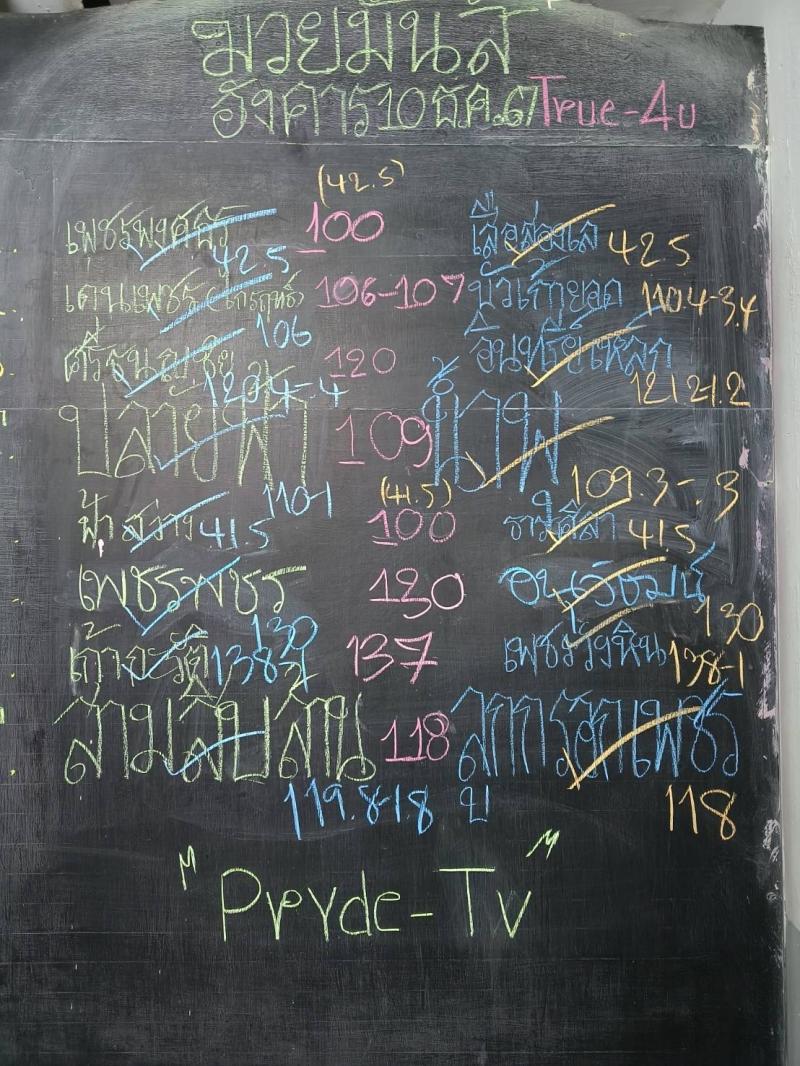 มวยมันส์
อังคาร 10 ธ.ค. True-4u
(42.5)
เพชรพงศธร 100 เสือสองเล
42.5 425
เดนเพชร (เกรฤทธิ์) 106-107 บัวเก้ายอด 110.4-3.4
106
ศรีธนญชัย 120 อินทรีย์เหล็ก
120.4-.4 121.2-1.2
ปลายฟ้า 109 น้ำเพ
110-1 (41.5) 109.3-.3
ฟ้าสว่าง 41.5 100 41.5
เพชรพชร 130 อนุวัฒน์
130 130
เก้าอะวัด 138.2 137 เพชรวังหิน 138-1
สามสิบล้าน 118 ลูกเพชร
119.8-1.8 ข 118
"Pryde-Tv"